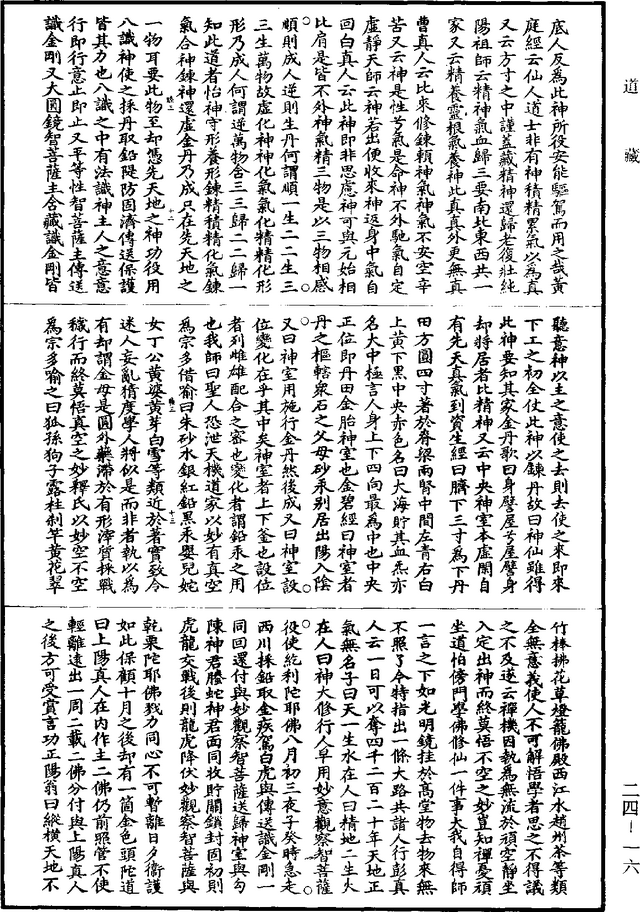 道藏
底人反爲此神所役安能驅駕而用之哉黃
庭經云仙人道士非有神積精累氣以爲真
又云方寸之中謹蓋藏精神還歸老復壯純
陽祖師云精神氣血歸三要南北東西共一
家又云精養靈根氣養神此真真外更無真
曹真人云比來修鍊賴神氣神氣不安空辛
苦又云神是性兮氣是命神不外馳氣自定
虛靜天師云神若出便收來神返身中氣自
回白真人云此神即非思慮神可與元始相
比肩是皆不外神氣精三物是以三物相感
順則成人逆則生丹何謂順一生二二生三
三生萬物故虛化神神化氣氣化精精化形
形乃成人何謂逆萬物含三三歸二二歸一
知此道者怡神守形養形鍊精積精化氣鍊
氣合神鍊神還虛金丹乃成只在先天地之
一物耳要此物至却憑先天地之神功役用
八識神使之採丹取鉛隄防固濟傳送保護
皆其力也八識之中有法識神主人之意意
行即行意止即止又平等性智菩薩主傳送
識金剛又大圓鏡智菩薩主含藏識金剛皆
聽意神以主之意使之去則去使之來即來
下工之初全仗此神以鍊丹故曰神仙雖得
此神要知其家金丹歌曰身譬屋兮屋譬身
却將居者比精神又云中央神室本虛閑自
有先天真氣到資生經曰臍下三寸爲下丹
田方圓四寸著於脊梁兩腎中間左青右白
上黃下黑中央赤色名曰大海貯其血炁亦
名大中極言人身上下四向最爲中也中央
正位即丹田金胎神室也金碧經曰神室者
丹之樞轄衆石之父母砂汞別居出陽入陰
又曰神室用施行金丹然後成又曰神室設
位變化在乎其中矣神室者上下釜也設位
者列雌雄配合之密也變化者謂鉛汞之用
也我師曰聖人恐泄天機道家以妙有真空
爲宗多借喻曰朱砂水銀紅鉛黑汞嬰兒姹
女丁公黃婆黃芽白雪等類近於著實致令
迷人妄亂猜度學人將似是而非者執以爲
有却謂金母是圓外藥滯於有形滓質採戰
穢行而終莫悟真空之妙釋氏以妙空不空
爲宗多喻之曰狐孫狗子露柱刹竿黃花翠
竹棒拂花草燈籠佛殿西江水趙州茶等類
全無意義使人不可解悟學者思之不得議
之不及遂云禪機因執爲無流於頑空靜坐
入定出神而終莫悟不空之妙豈知禪憂頑
坐道怕傍門學佛修仙一件事大我自得師
一言之下如光明鏡挂於高堂物去物來無
不照了今特指出一條大路共諸人行彭真
人云一日可以奪四千三百二十年天地正
氣無名子曰天一生水在人曰精地二生火
在人曰神大修行人早用妙意觀察智菩薩
役使紇利陀耶佛八月初三夜子癸時急走
西川採鉛取金疾駕白虎與傳送識金剛一
同回還付與妙觀察智菩薩送歸神室與勾
陳神君螣蛇神君面同牧貯關鎖封固初則
虎龍交戰後則龍虎降伏妙觀察智菩薩與
乾栗陀耶佛戮力同心不可暫離日夕衞護
如此保顧十月之後却有一箇金色頭陀道
曰上陽真人在內作主二佛仍前照管不使
輕離遠出一周二載二佛分付與上陽真人
之後方可受賞言功正陽翁曰縱橫天地不
二四—一六